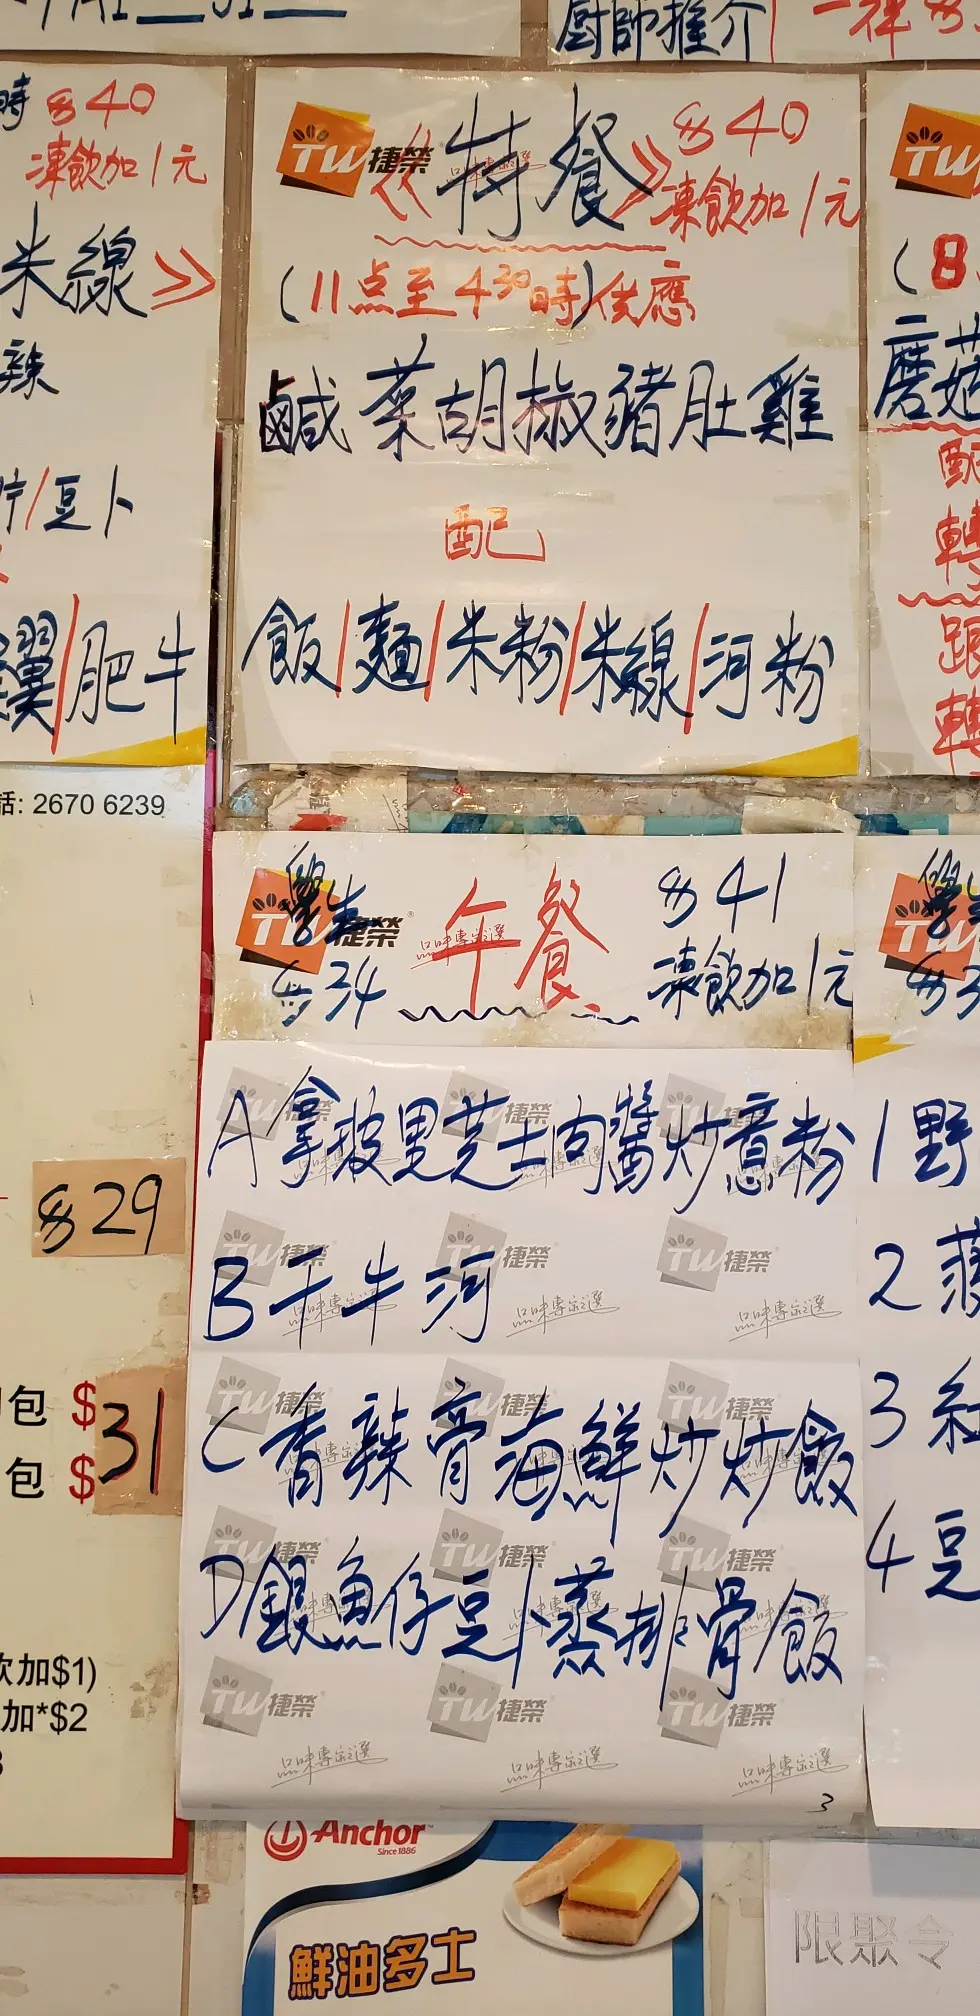 厨師推介
時 $40
凍飲加1元
米線》
辣
/豆卜
翼/肥牛
TW捷榮
《特餐》
$40
凍飲加1元
(11点至430時)供應
鹹菜胡椒豬肚雞
配
飯/麵/米粉/米線/河粉
(8
磨菇
配
轉
跟
轉
話: 2670 6239
$29
包 $31
包 $
飲加$1)
加*$2
TW捷榮
品味專家之選
學生
$34
午餐
$41
凍飲加1元
A拿坡里芝士肉醬炒意粉
B干牛河
C香辣膏海鮮炒炒飯
D銀魚仔豆卜蒸排骨飯
3
學生
$3
1野
2
3紅
4豆
Anchor
Since 1886
鮮油多士
限聚令